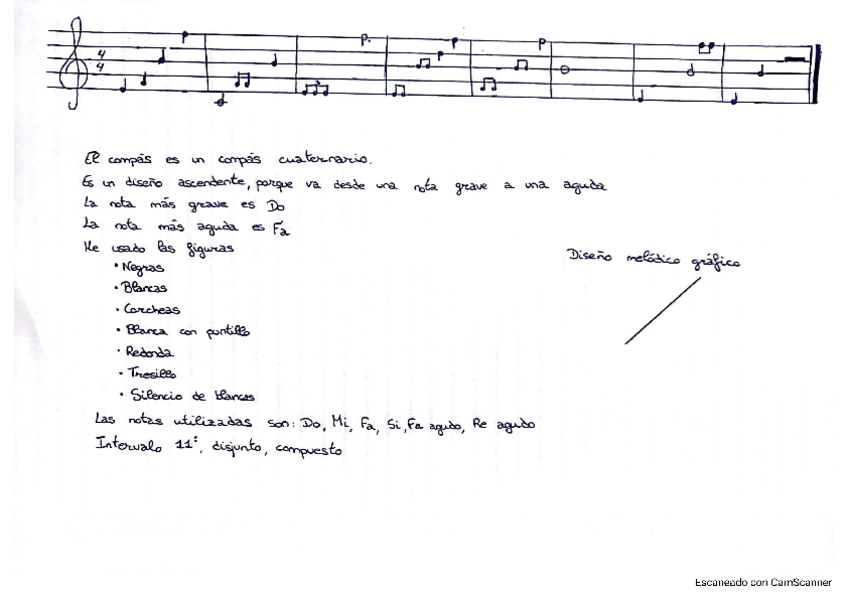 4
4
El compás es un compás cuaternario.
Es un diseño ascendente, porque va desde una nota grave a una aguda
La nota más grave es Do
La nota más aguda es Fa
He usado las figuras
• Negras
• Blancas
• Corcheas
• Blanca con puntillo
• Redonda
• Tresillo
• Silencio de blancas
Diseño melódico gráfico
Las notas utilizadas son: Do, Mi, Fa, Si, Fa agudo, Re agudo
Intervalo 11ª, disjunto, compuesto
Escaneado con CamScanner